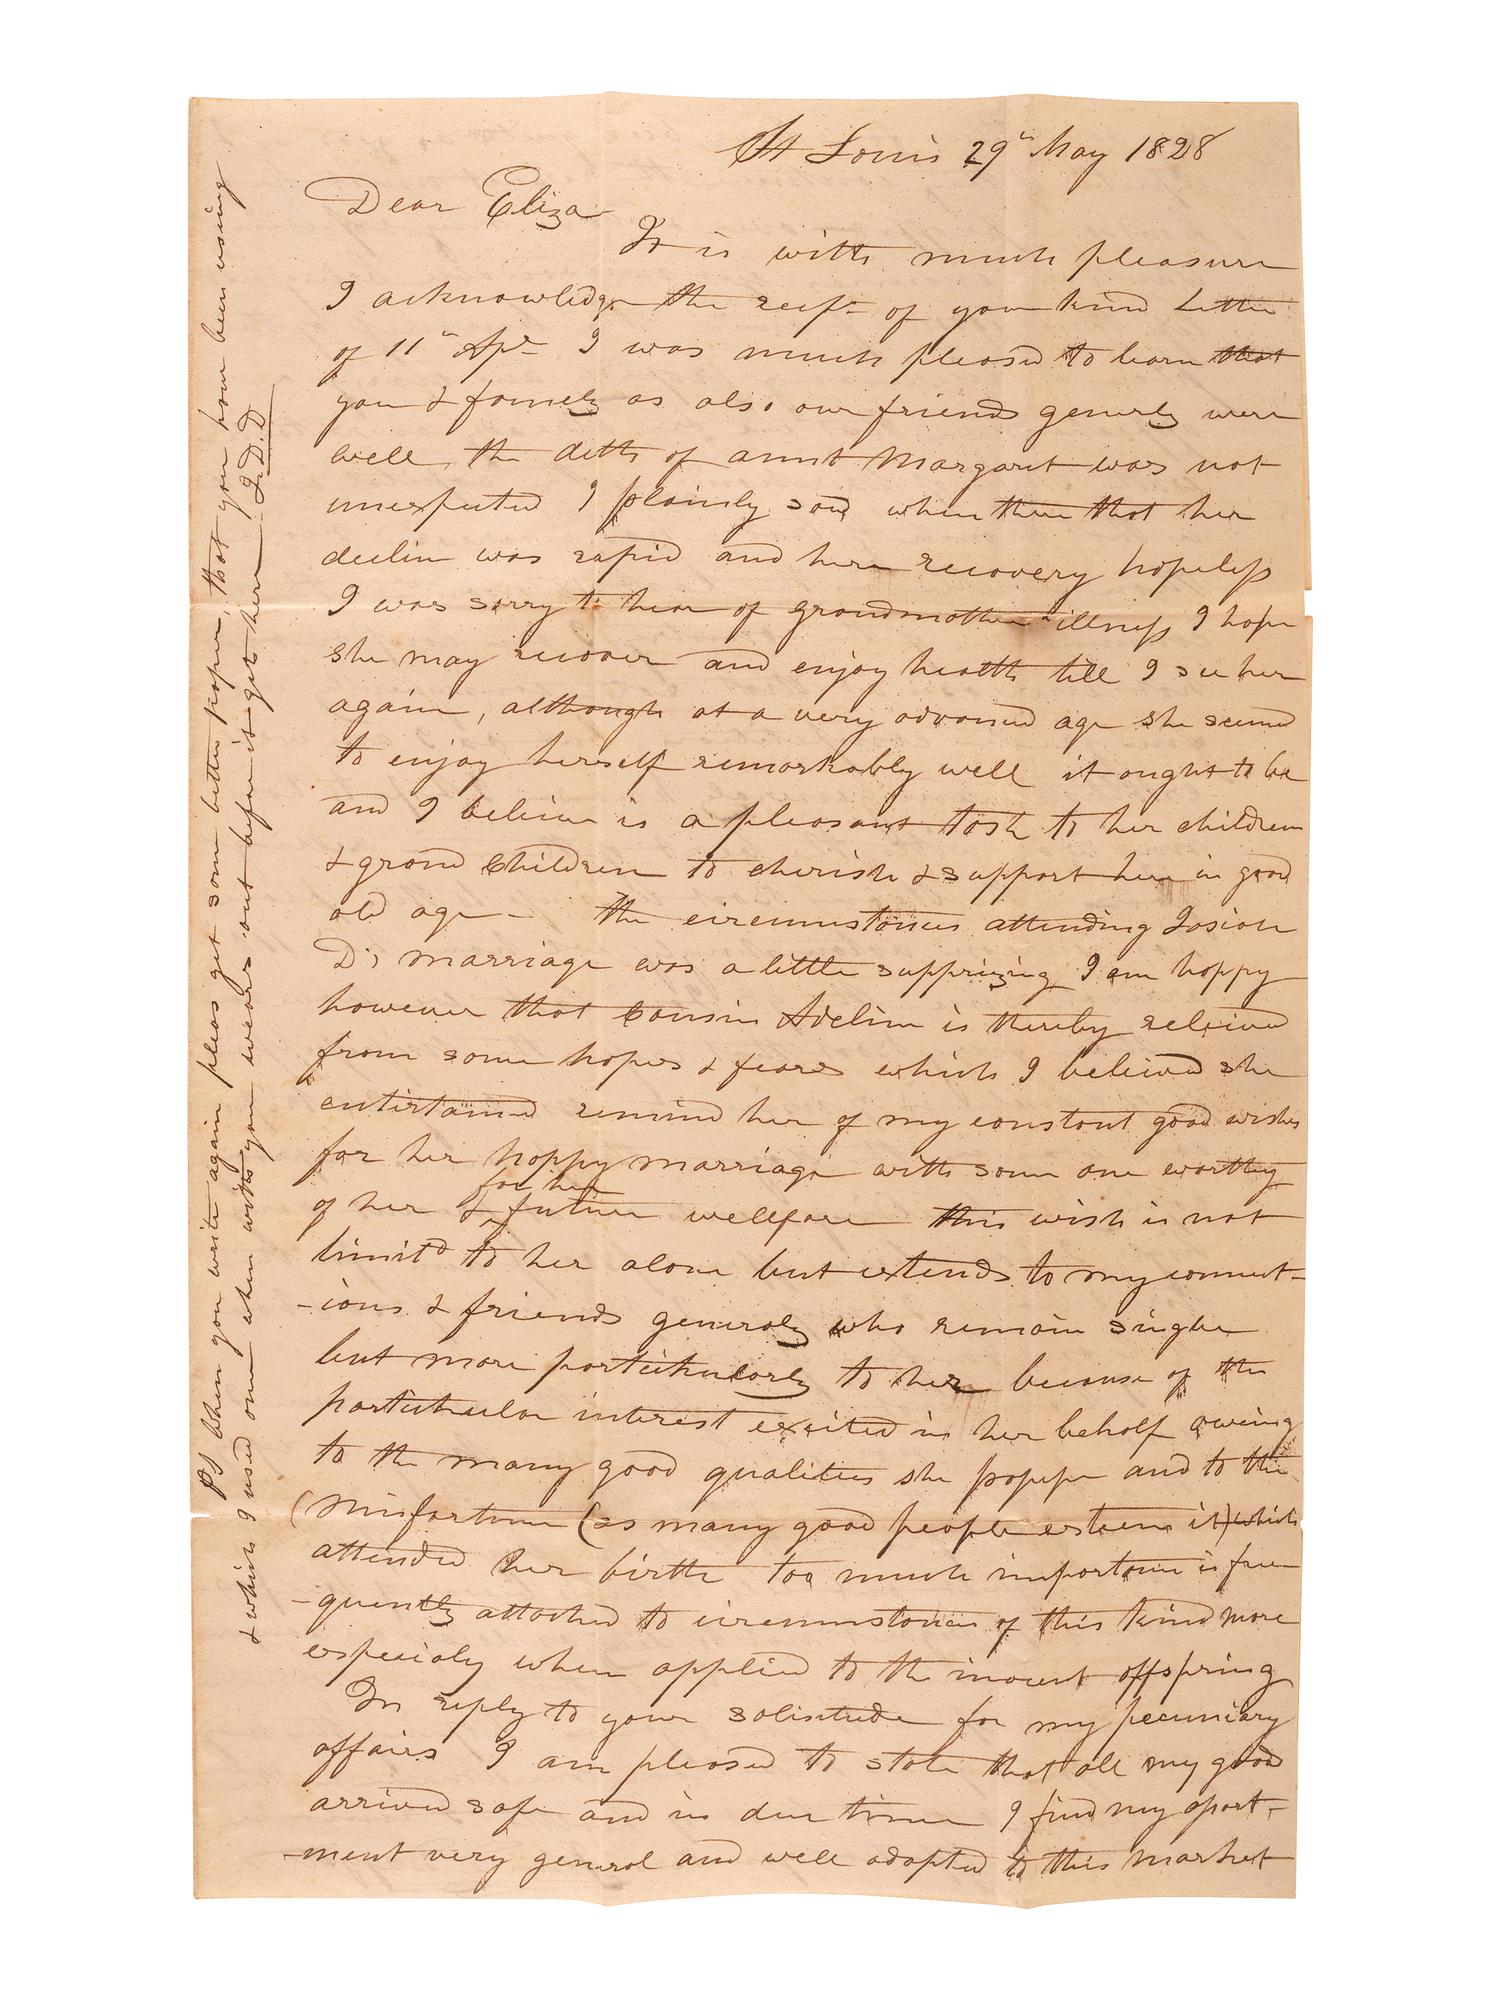 St Louis 29th May 1828
Dear Eliza
It is with much pleasure
I acknowledge the recpt of your kind Letter
of 11th Apr I was much pleased to learn that
you & famely as also our friends generly were
well, the deth of aunt Margaret was not
unexpected I plainly saw when there that her
declin was rapid and here recovery hopeless
I was sorry to hear of grandmother illness I hope
she may recover and enjoy health till I see her
again, although at a very advanced age she seemed
to enjoy herself remarkably well it ought to be
and I believe is a pleasant task to her children
& grand Children to cherish & support her in good
old age - The circumstances attending Josiah
D's marriage was a little supprizing I am happy
however that Cousin Adeline is thereby releived
from some hopes & fears which I believed she
entertained remind her of my constant good wishes
for her happy marriage with some one worthy
of her & for her future wellfare this wish is not
limitd to her alone but extends to my connect-
-ions & friends generaly who remain single
but more partickularly to her because of the
partickular interest excited in her behalf owing
to the many good qualities she possesse and to the
(misfortune (as many good people esteem it) which
attended her birth too much importance is free
-quently attached to circumstances of this kind more
especialy when applied to the inocent offspring
In reply to your solisitude for my pecuniary
affairs I am pleased to state that all my good
arrived safe and in due time I find my asort-
-ment very general and well adapted to this market
PS When you write again pleas get some better paper, that you have been using
& which I used one when with you wears out before it get here J.D.D